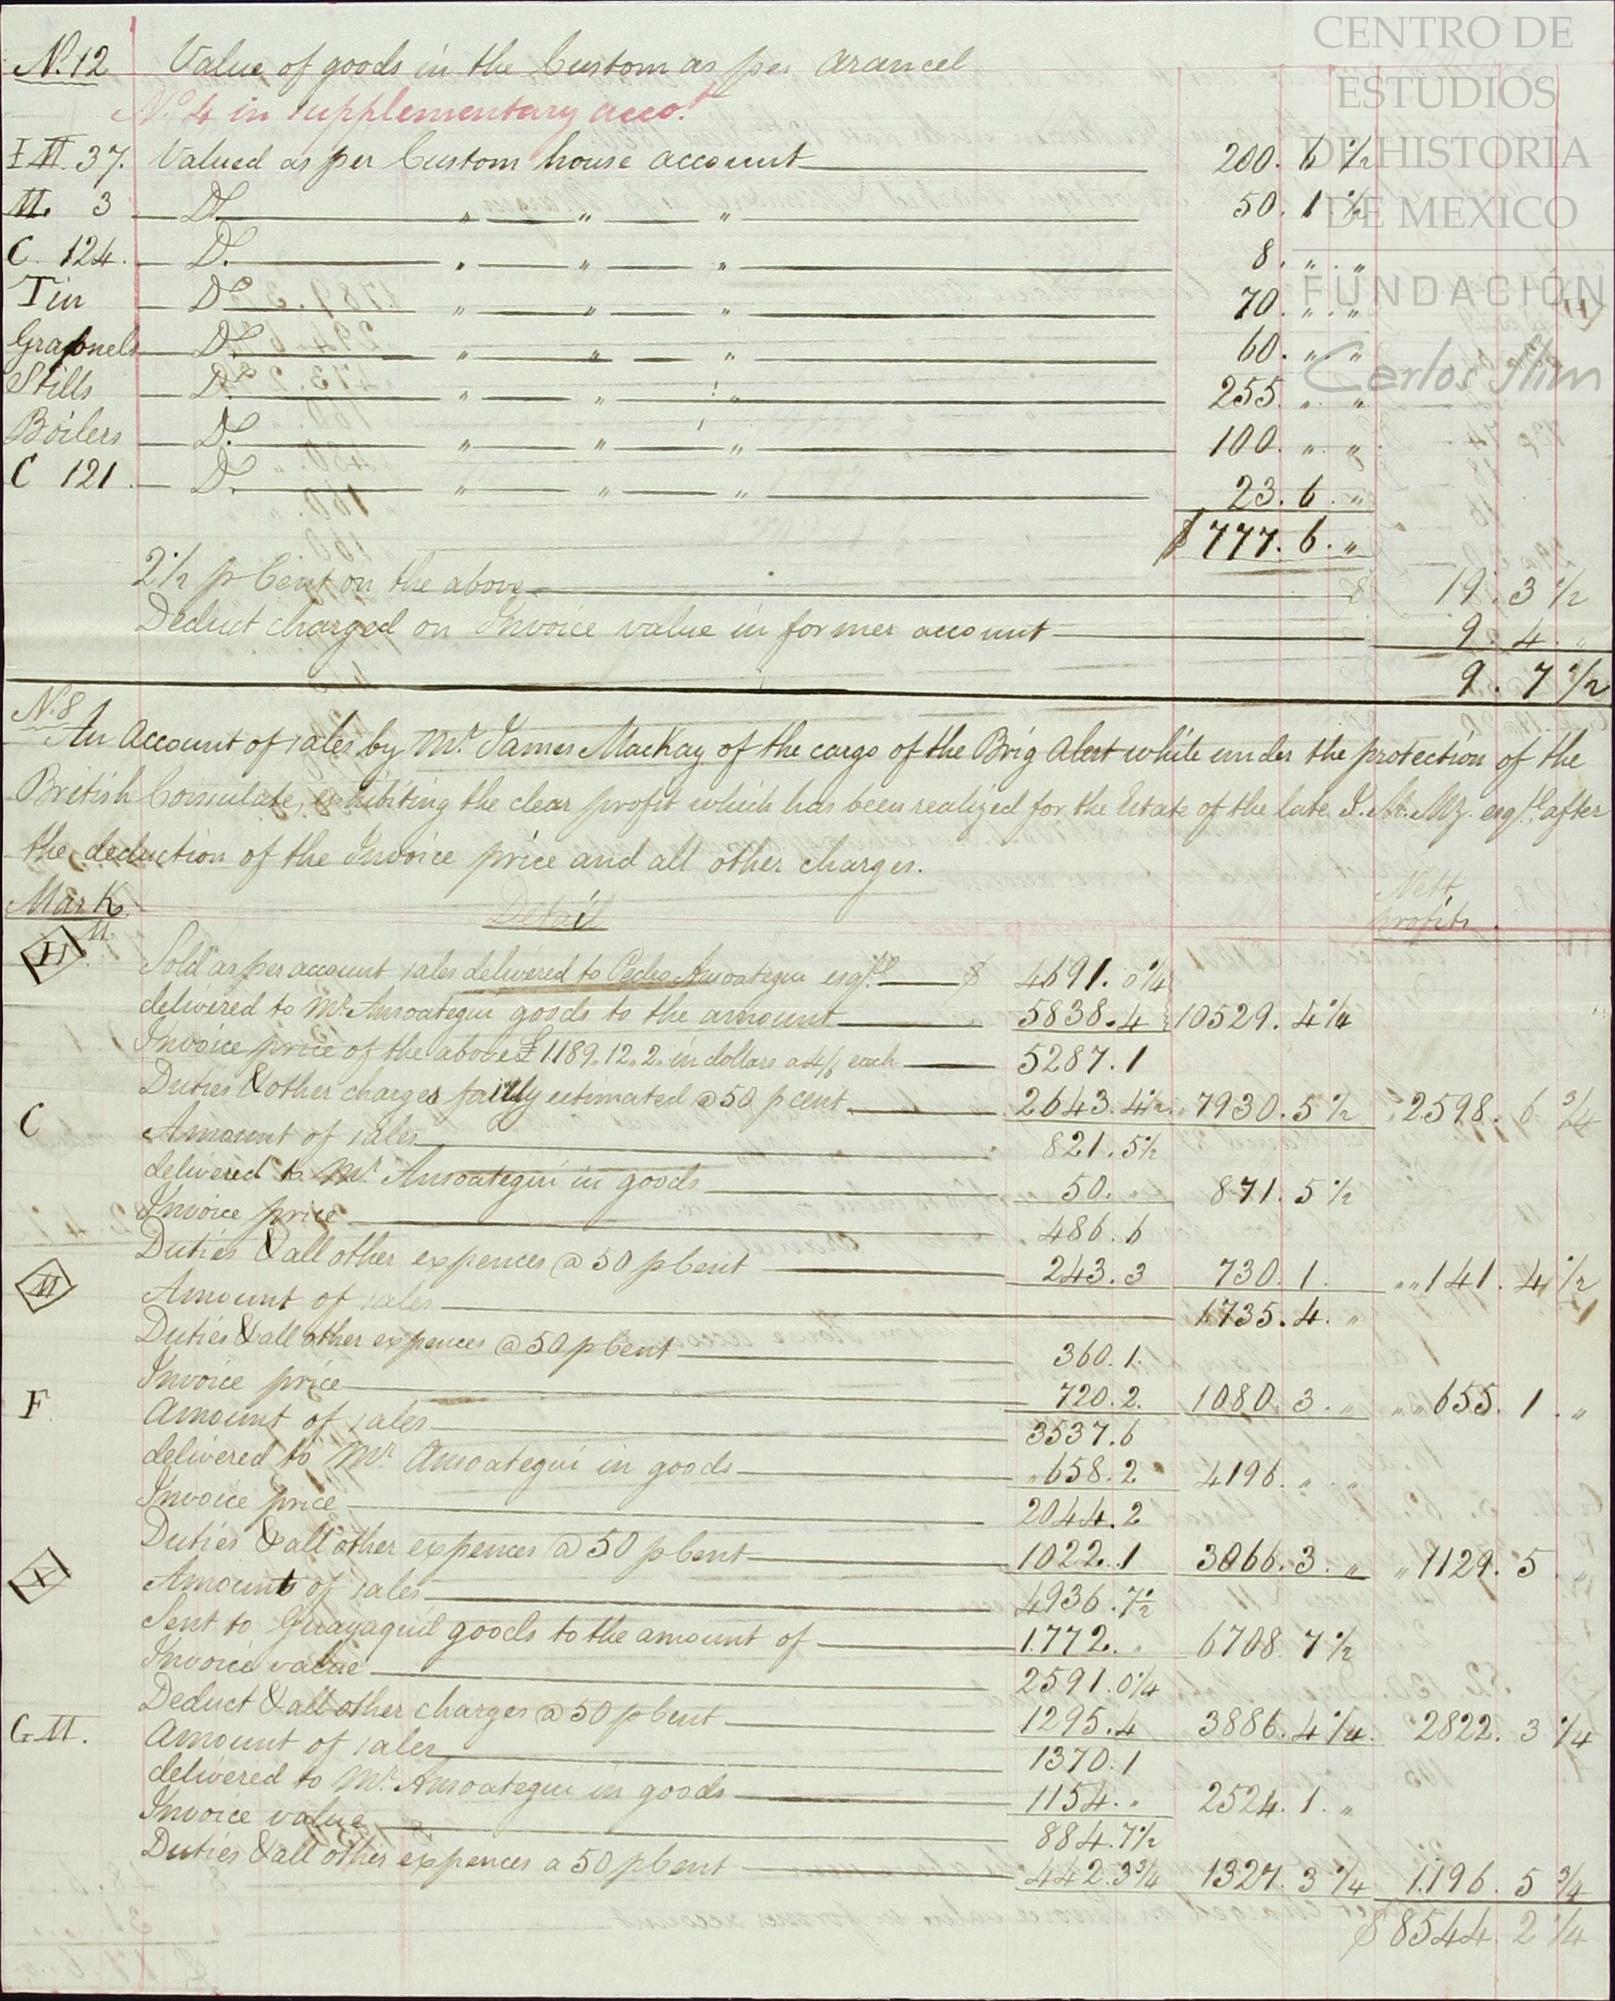 CENTRO DE
ESTUDIOS
DE HISTORIA
DE MEXICO
FUNDACIÓN
Carlos Slim
No. 12 Value of goods in the Custom as per arancel
No. 4 in supplementary acco.t
I M. 37. Valued as per Custom house account 200. 6 1/2
M. 3 Do. " " " 50. 1 1/2
C 124. Do. " " " 8. " "
Tin Do " " " 70. " "
Grapnels Do " " " 60. " "
Stills Do. " " " 255. " "
Boilers Do. " " " 100. " "
C 121 Do. " " " 23. 6. "
$ 777. 6. "
2 1/2 p Cent on the above 19. 3 1/2
Deduct charged on Invoice value in former account 9. 4. "
9. 7 1/2
No. 8
An Account of sales by Mr. James Mackay of the cargo of the Brig Alert while under the protection of the
British Consulate, exhibiting the clear profit which has been realized for the Estate of the late J. M. Mz. esqre. after
the deduction of the Invoice price and all other charges.
Mark Detail Nett profits.
H M. Sold as per account sales delivered to Pedro Amoategui esqre. $ 4691. 0 1/4
delivered to Mr. Amoategui goods to the amount 5838. 4 10529. 4 1/4
Invoice price of the above £ 1189. 12. 2. in dollars a 4/6 each 5287. 1
Duties & other charges fairly estimated @ 50 p cent. 2643. 4 1/2 7930. 5 1/2 2598. 6 3/4
C Amount of sales 821. 5 1/2
delivered to Mr. Amoategui in goods 50. " 871. 5 1/2
Invoice price 486. 6
Duties & all other expences @ 50 p Cent 243. 3 730. 1. " " 141. 4 1/2
M Amount of sales 1735. 4. "
Duties & all other expences @ 50 p Cent 360. 1.
Invoice price 720. 2. 1080. 3. " " " 655. 1. "
F Amount of sales 3537. 6
delivered to Mr. Amoategui in goods " 658. 2 4196. " "
Invoice price 2044. 2
Duties & all other expences @ 50 p Cent 1022. 1 3066. 3. " " 1129. 5. "
X Amount of sales 4936. 7 1/2
Sent to Guayaquil goods to the amount of 1772. " 6708 7 1/2
Invoice value 2591. 0 1/4
Deduct & all other charges @ 50 p Cent 1295. 4 3886. 4 1/4. 2822. 3 1/4
G M. Amount of sales 1370. 1
delivered to Mr. Amoategui in goods 1154. " 2524. 1. "
Invoice value 884. 7 1/2
Duties & all other expences a 50 p Cent 442. 3 3/4 1327. 3 1/4 1196. 5 3/4
$ 8544. 2 1/4